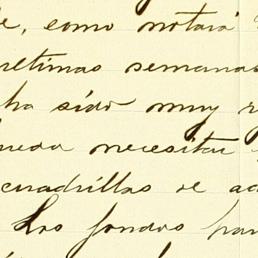 e, como notará
ultimas semanas
ha sido muy r
necesitar
cuadrillas se ad
Los fondos par